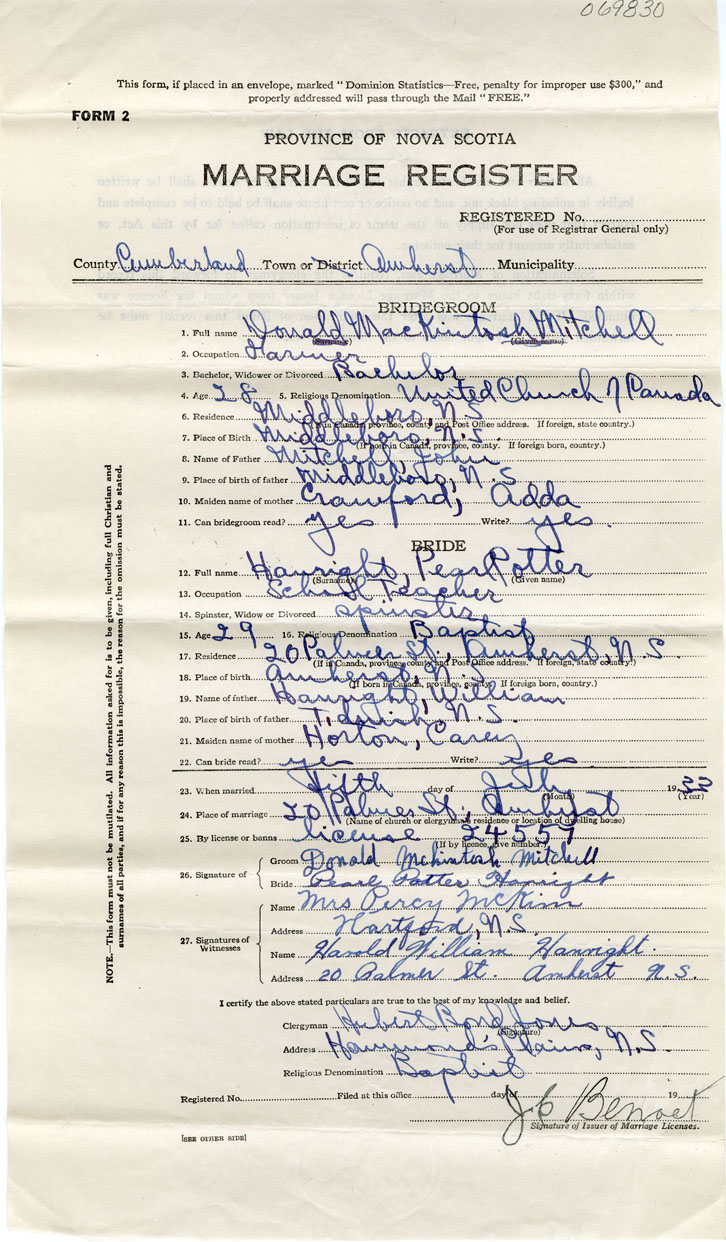 069830
This form, if placed in an envelope, marked “ Dominion Statistics—Free, penalty for improper use $300,” and
properly addressed will pass through the Mail “ FREE.”
FORM 2
PROVINCE OF NOVA SCOTIA
MARRIAGE REGISTER
REGISTERED No.
(For use of Registrar General only)
County Cumberland Town or District Amherst Municipality
BRIDEGROOM
1. Full name Donald MacKintosh Mitchell
(Surname) (Given name)
2. Occupation Farmer
3. Bachelor, Widower or Divorced Bachelor
4. Age 28 5. Religious Denomination United Church of Canada
6. Residence Middleboro, N.S.
(If in Canada, province, county and Post Office address. If foreign, state country.)
7. Place of Birth Middleboro, N.S.
(If born in Canada, province, county. If foreign born, country.)
8. Name of Father Mitchell, John
9. Place of birth of father Middleboro, N.S.
10. Maiden name of mother Crawford, Adda
11. Can bridegroom read? yes Write? yes.
BRIDE
12. Full name Hanright, Pearl Potter
(Surname) (Given name)
13. Occupation School Teacher
14. Spinster, Widow or Divorced spinster
15. Age 29 16. Religious Denomination Baptist
17. Residence 20 Palmer St., Amherst, N.S.
(If in Canada, province, county and Post Office address. If foreign, state country.)
18. Place of birth Amherst, N.S.
(If born in Canada, province, county. If foreign born, country.)
19. Name of father Hanright, William
20. Place of birth of father Tidnish, N.S.
21. Maiden name of mother Horton, Carey
22. Can bride read? yes Write? yes
23. When married Fifth day of July 19
(Month) (Year)
24. Place of marriage 20 Palmer St., Amherst
(Name of church or clergyman's residence or location of dwelling house)
25. By license or banns license 24557
(If by licence, give number.)
26. Signature of
Groom Donald McKintosh Mitchell
Bride Pearl Potter Hanright
27. Signatures of Witnesses
Name Mrs Percy McKim
Address Hartford, N.S.
Name Harold William Hanright.
Address 20 Palmer St. Amherst N.S.
I certify the above stated particulars are true to the best of my knowledge and belief.
Clergyman Hubert Bond Jones
(Signature)
Address Hammond's Plains, N.S.
Religious Denomination Baptist
Registered No. Filed at this office day of 19
Benoet
Signature of Issuer of Marriage Licenses.
[SEE OTHER SIDE]
NOTE.—This form must not be mutilated. All information asked for is to be given, including full Christian and
surnames of all parties, and if for any reason this is impossible, the reason for the omission must be stated.